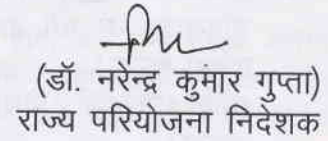 (डॉ. नरेन्द्र कुमार गुप्ता)
राज्य परियोजना निदेशक